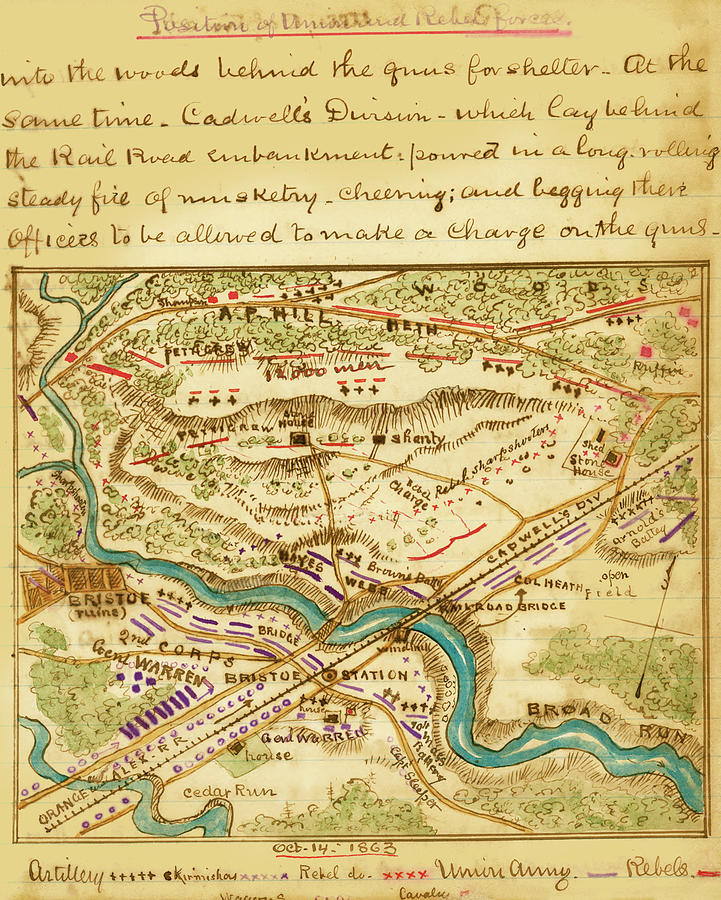 Position of Union and Rebel forces.
into the woods behind the guns for shelter - At the
same time - Cadwell's Division - which lay behind
the Rail Road embankment: poured in a long rolling
steady fire of musketry - cheering; and begging their
Officers to be allowed to make a Charge on the guns -
WOODS
A.P. HILL
HETH
PETIGREW
12,000 men
Ruffin
STONE HOUSE
Shanty
PETTIGREW
Rebel Sharpshooters
Reb Charge
Shed
Stone House
CADWELL'S DIV
Arnold's Battery
HAYES
Brown's Baty
WEBB
COL HEATH
open Field
RAILROAD BRIDGE
BRISTOE
(ruins)
BRIDGE
2nd CORPS
Genl WARREN
windmill
BRISTOE STATION
BROAD RUN
house
Genl WARREN
house
Capt Sleeper
ORANGE and ALEX. RR
Cedar Run
Oct-14-1863
Artillery +++++ Skirmishers xxxxx Rebel do - xxxx Union Army. — Rebels. —
Wagons
Cavalry